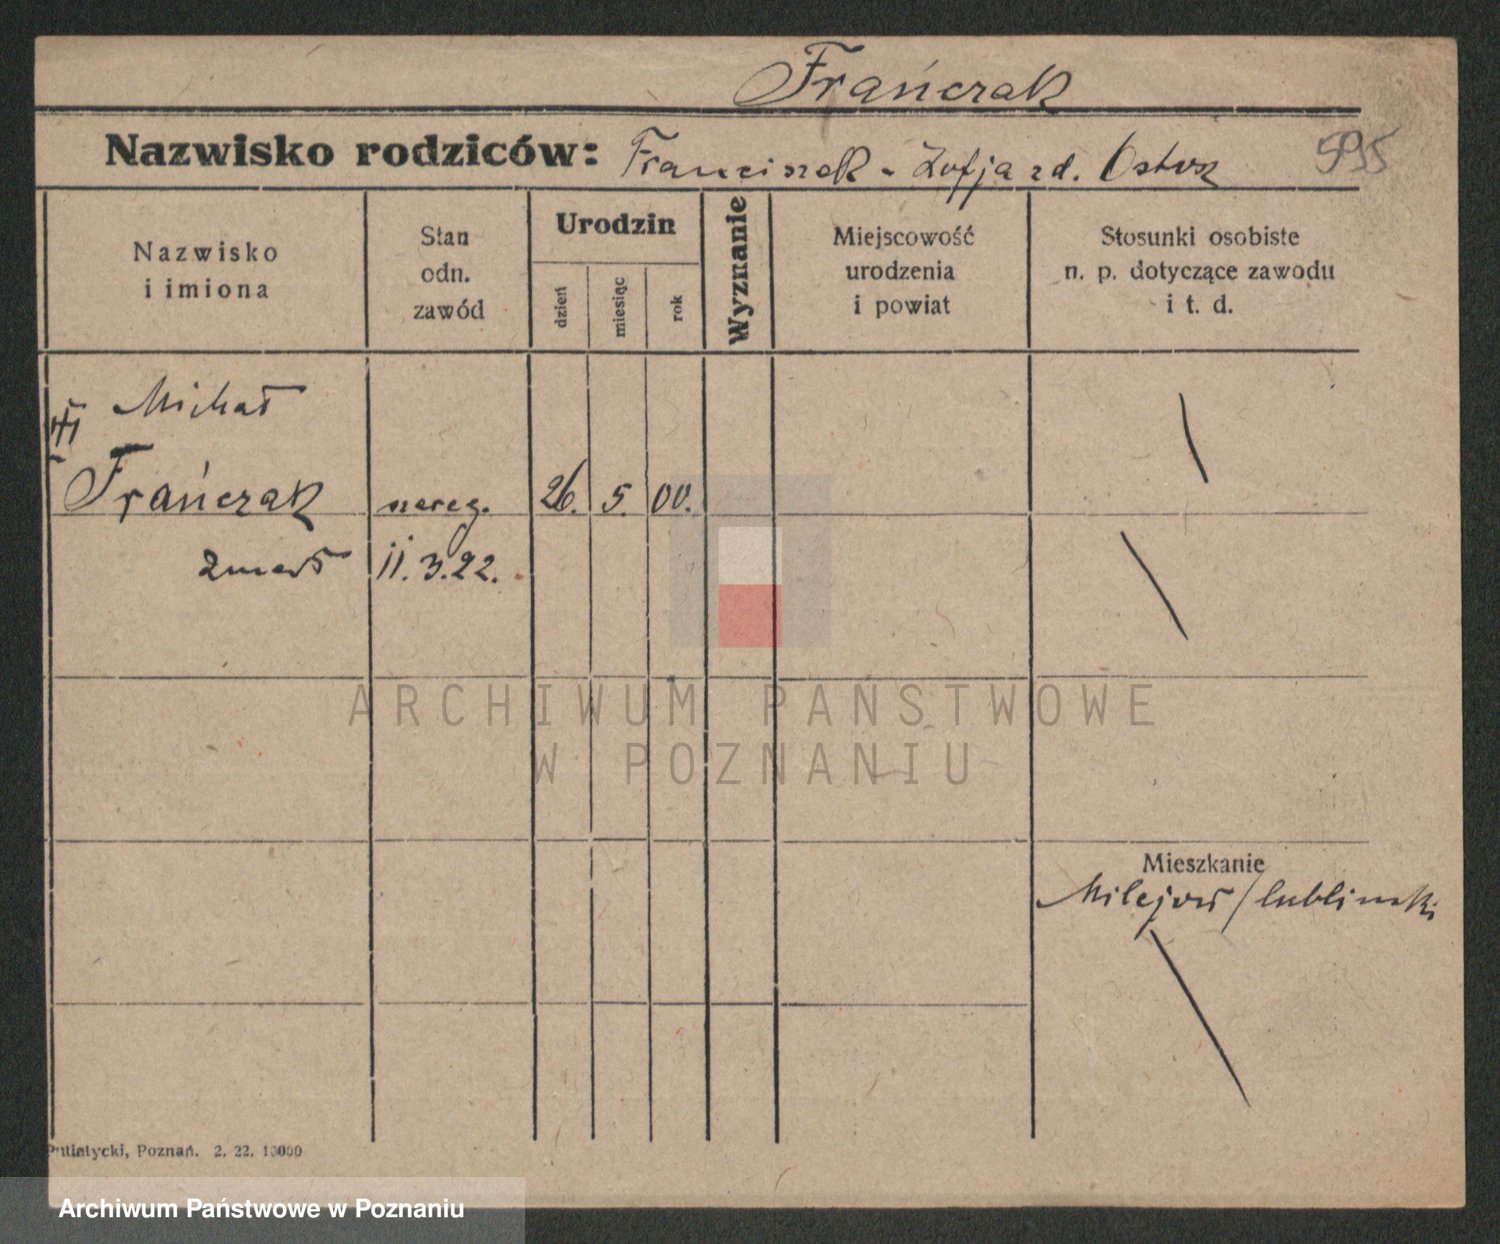 Frańczak
Nazwisko rodziców: Franciszek - Zofja zd. Ostosz
595
Nazwisko
i imiona
Stan
odn.
zawód
Urodzin
dzień
miesiąc
rok
Wyznanie
Miejscowość
urodzenia
i powiat
Stosunki osobiste
n. p. dotyczące zawodu
i t. d.
Michał
Frańczak szereg. 26. 5. 00.
zmarł 11.3.22.
ARCHIWUM PAŃSTWOWE
W POZNANIU
Mieszkanie
Milejów / lubliński
Putiatycki, Poznań. 2. 22. 10000
Archiwum Państwowe w Poznaniu